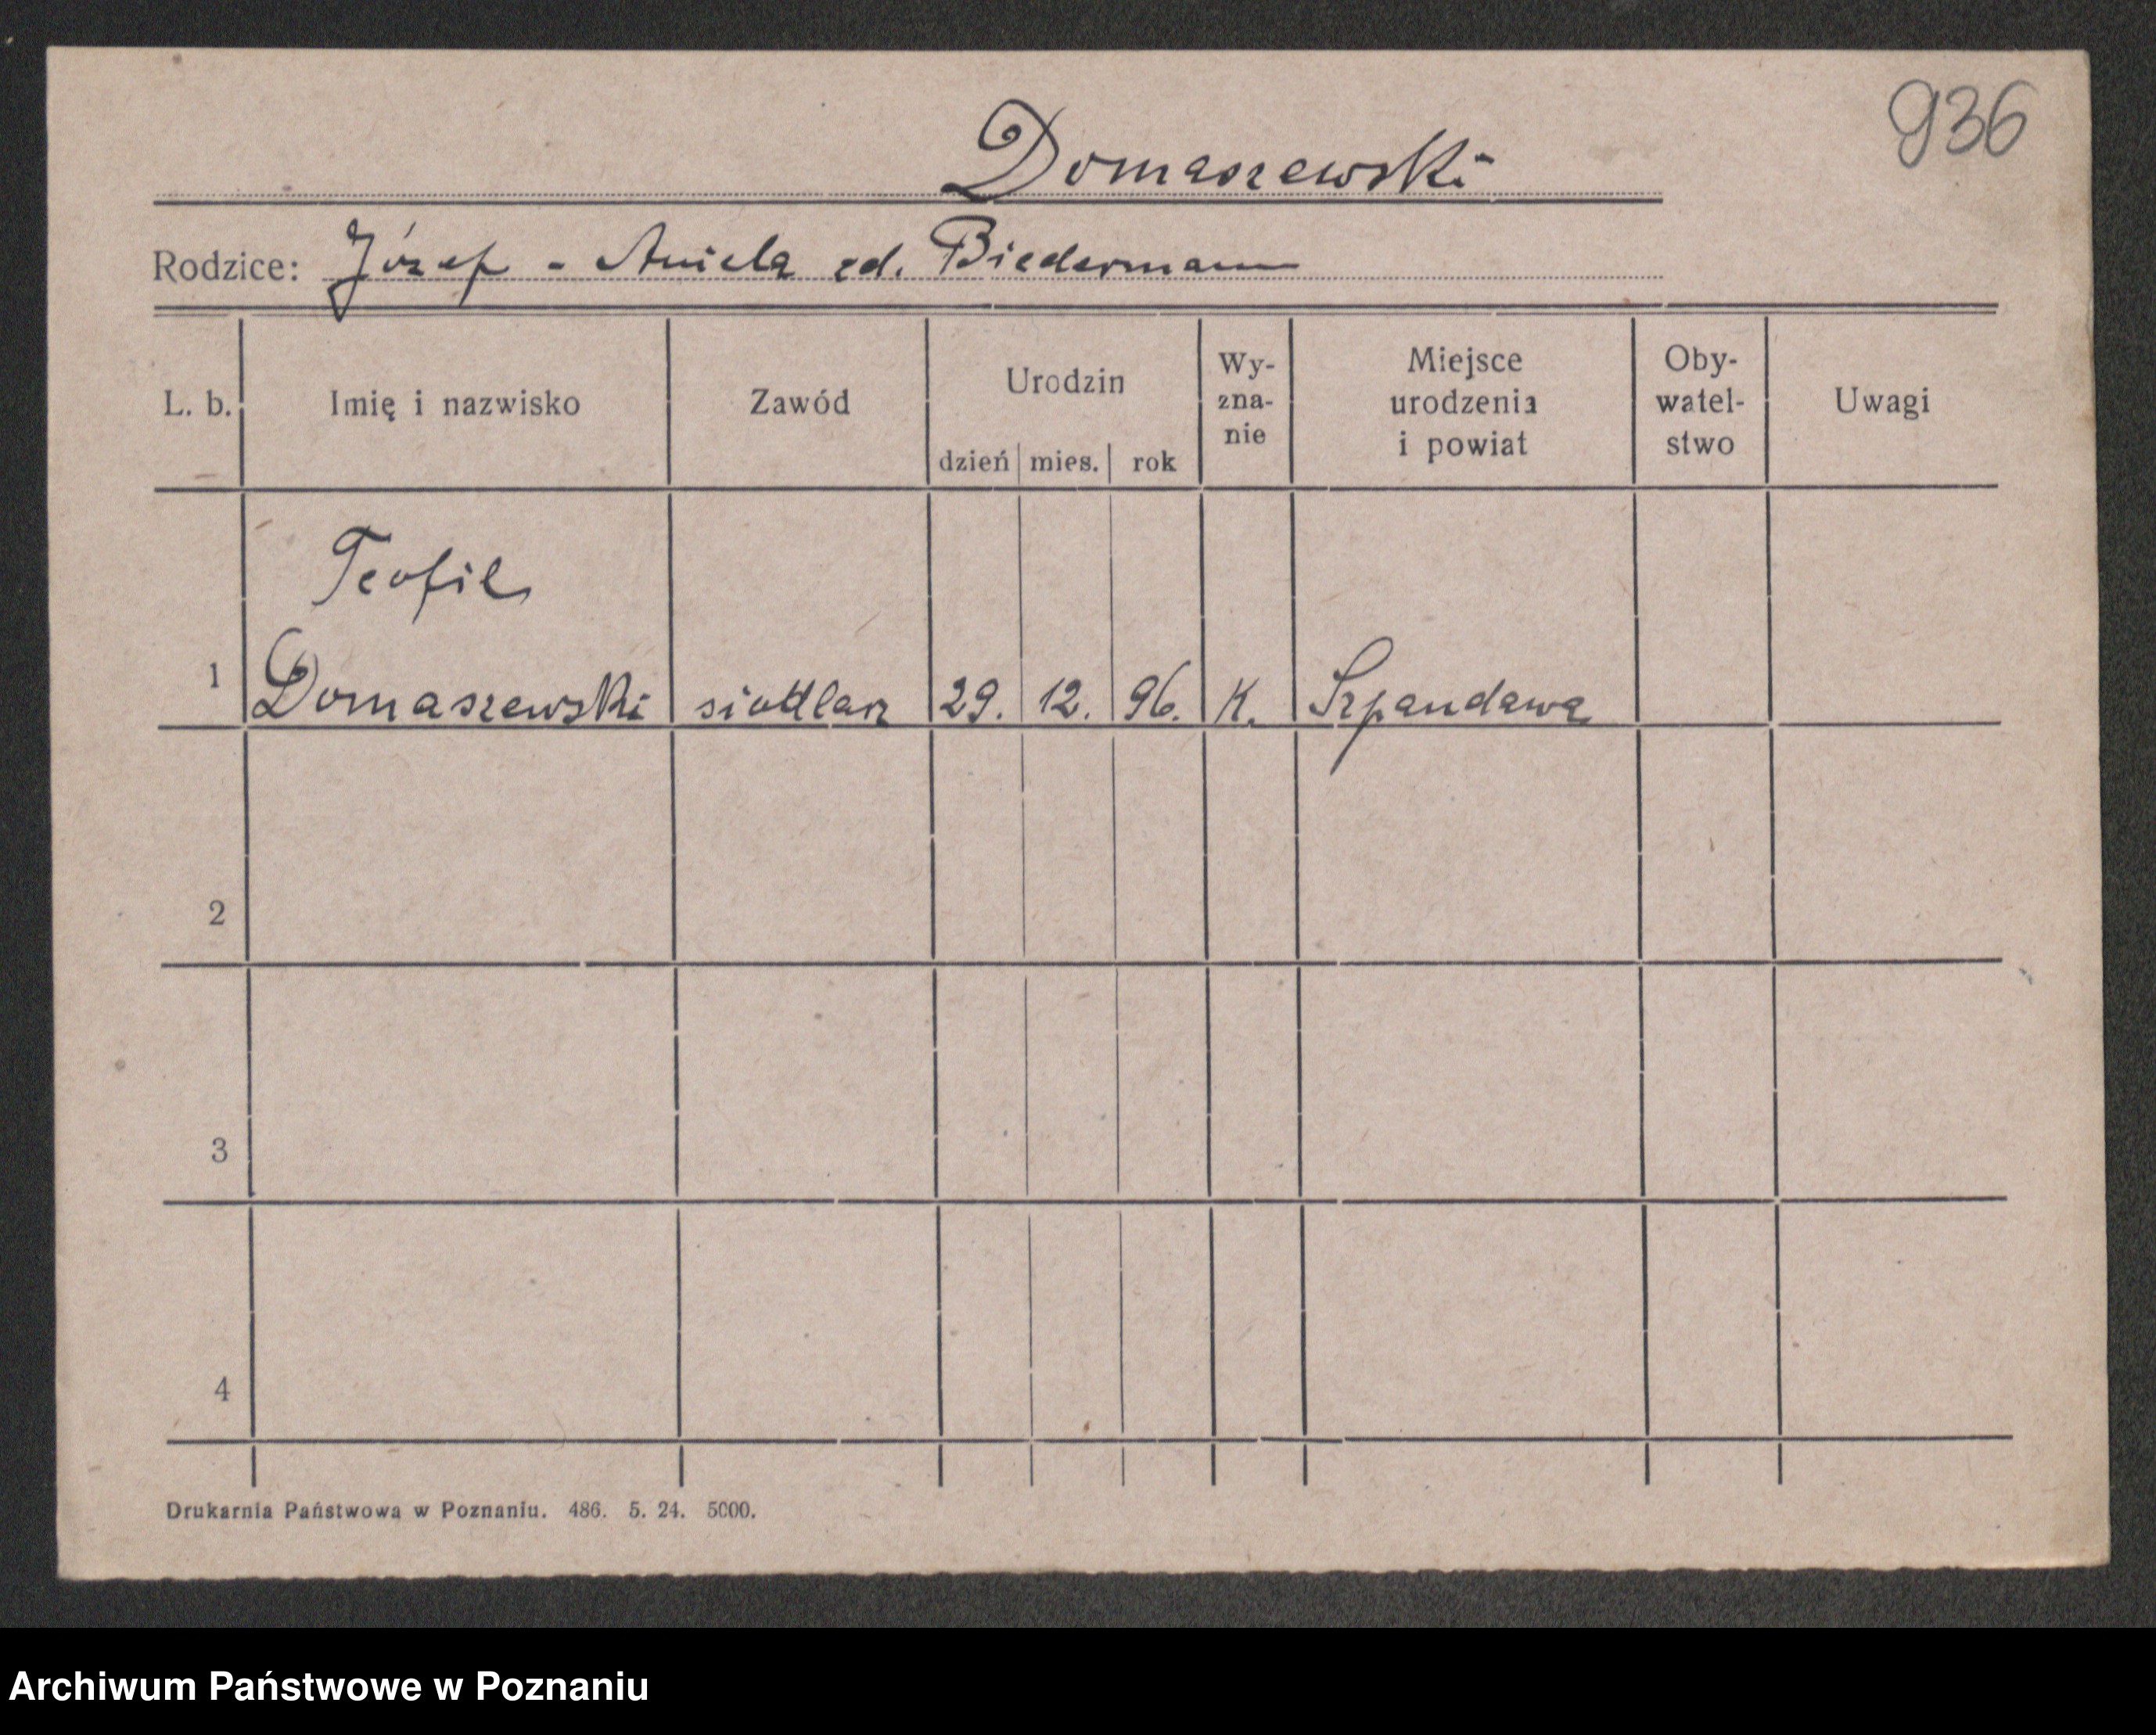 936
Domaszewski
Rodzice: Józef - Aniela zd. Biedermann
L. b. Imię i nazwisko Zawód Urodzin dzień mies. rok Wy-zna-nie Miejsce urodzenia i powiat Oby-watel-stwo Uwagi
Teofil
1 Domaszewski siodlarz 29. 12. 96. K. Szpandawa
2
3
4
Drukarnia Państwowa w Poznaniu. 486. 5. 24. 5000.
Archiwum Państwowe w Poznaniu